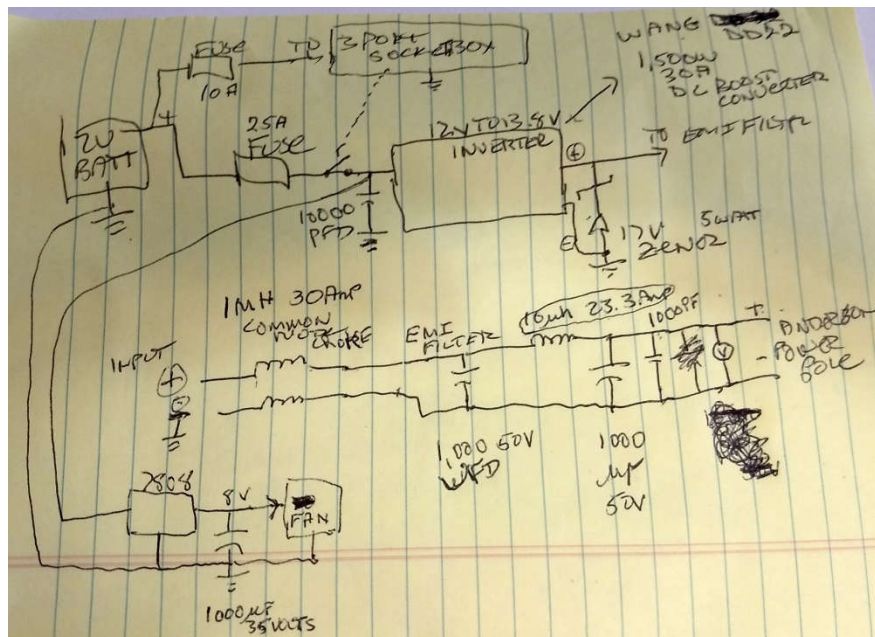 FUSE
10A
TO
3 PORT
SOCKET BOX
WANG
DD22
1,500W
30A
DC BOOST
CONVERTER
12V
BATT
+
25A
FUSE
12V TO 13.8V
INVERTER
+
TO EMI FILTER
10000
PFD
-
17V 5 WATT
ZENOR
1MH 30Amp
COMMON
MODE
CHOKE
EMI
FILTER
10µh 23.3 Amp
1000PF
+
-
ANDERSON
POWER
POLE
INPUT
+
-
V
1,000 50V
µFD
1000
µF
50V
7808
8V
FAN
1000µF
35 VOLTS